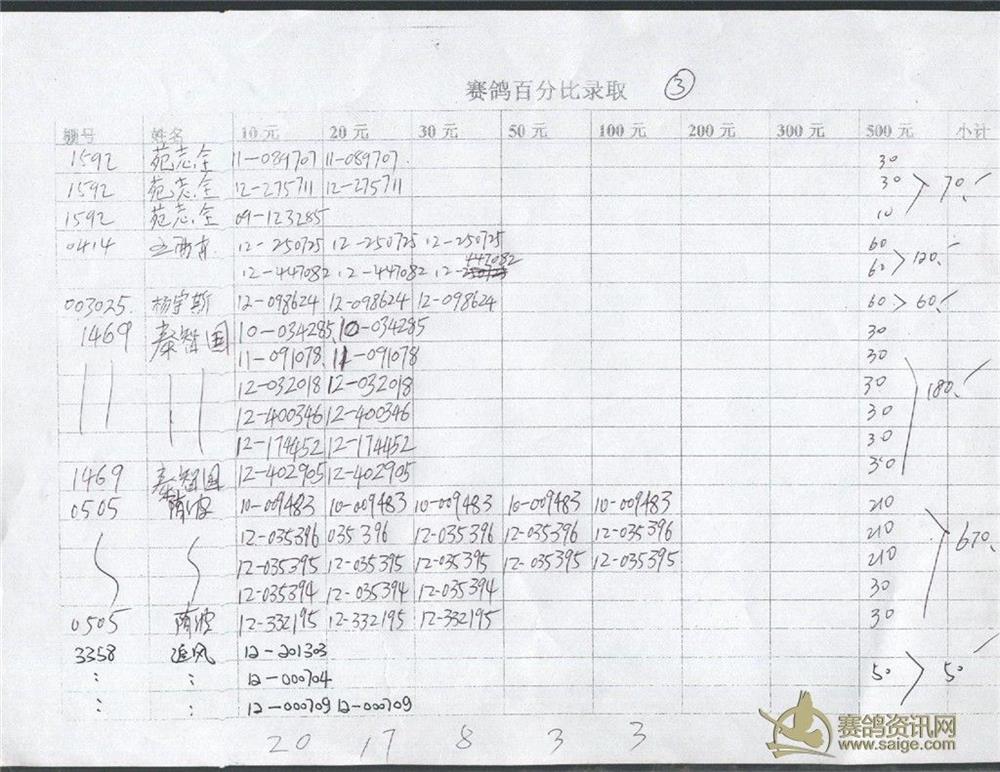 赛鸽百分比录取 ③
棚号 姓名 10 元 20 元 30 元 50 元 100 元 200 元 300 元 500 元 小计
1592 苑志全 11-089707 11-089707 30
1592 苑志全 12-275711 12-275711 30 70
1592 苑志全 09-123285 10
0414 12-250725 12-250725 12-250725 60
12-447082 12-447082 12-447082 60 120
003025 杨宇斯 12-098624 12-098624 12-098624 60 60
1469 秦智国 10-034285 10-034285 30
11-091078 11-091078 30
12-032018 12-032018 30 180
12-400346 12-400346 30
12-174452 12-174452 30
1469 秦智国 12-402905 12-402905 30
0505 10-009483 10-009483 10-009483 10-009483 10-009483 210
12-035396 035396 12-035396 12-035396 12-035396 210
12-035395 12-035395 12-035395 12-035395 12-035395 210 670
12-035394 12-035394 12-035394 30
0505 12-332195 12-332195 12-332195 30
3358 追风 12-201303
: : 12-000704 50 50
: : 12-000709 12-000709
20 17 8 3 3
赛鸽资讯网
www.saige.com